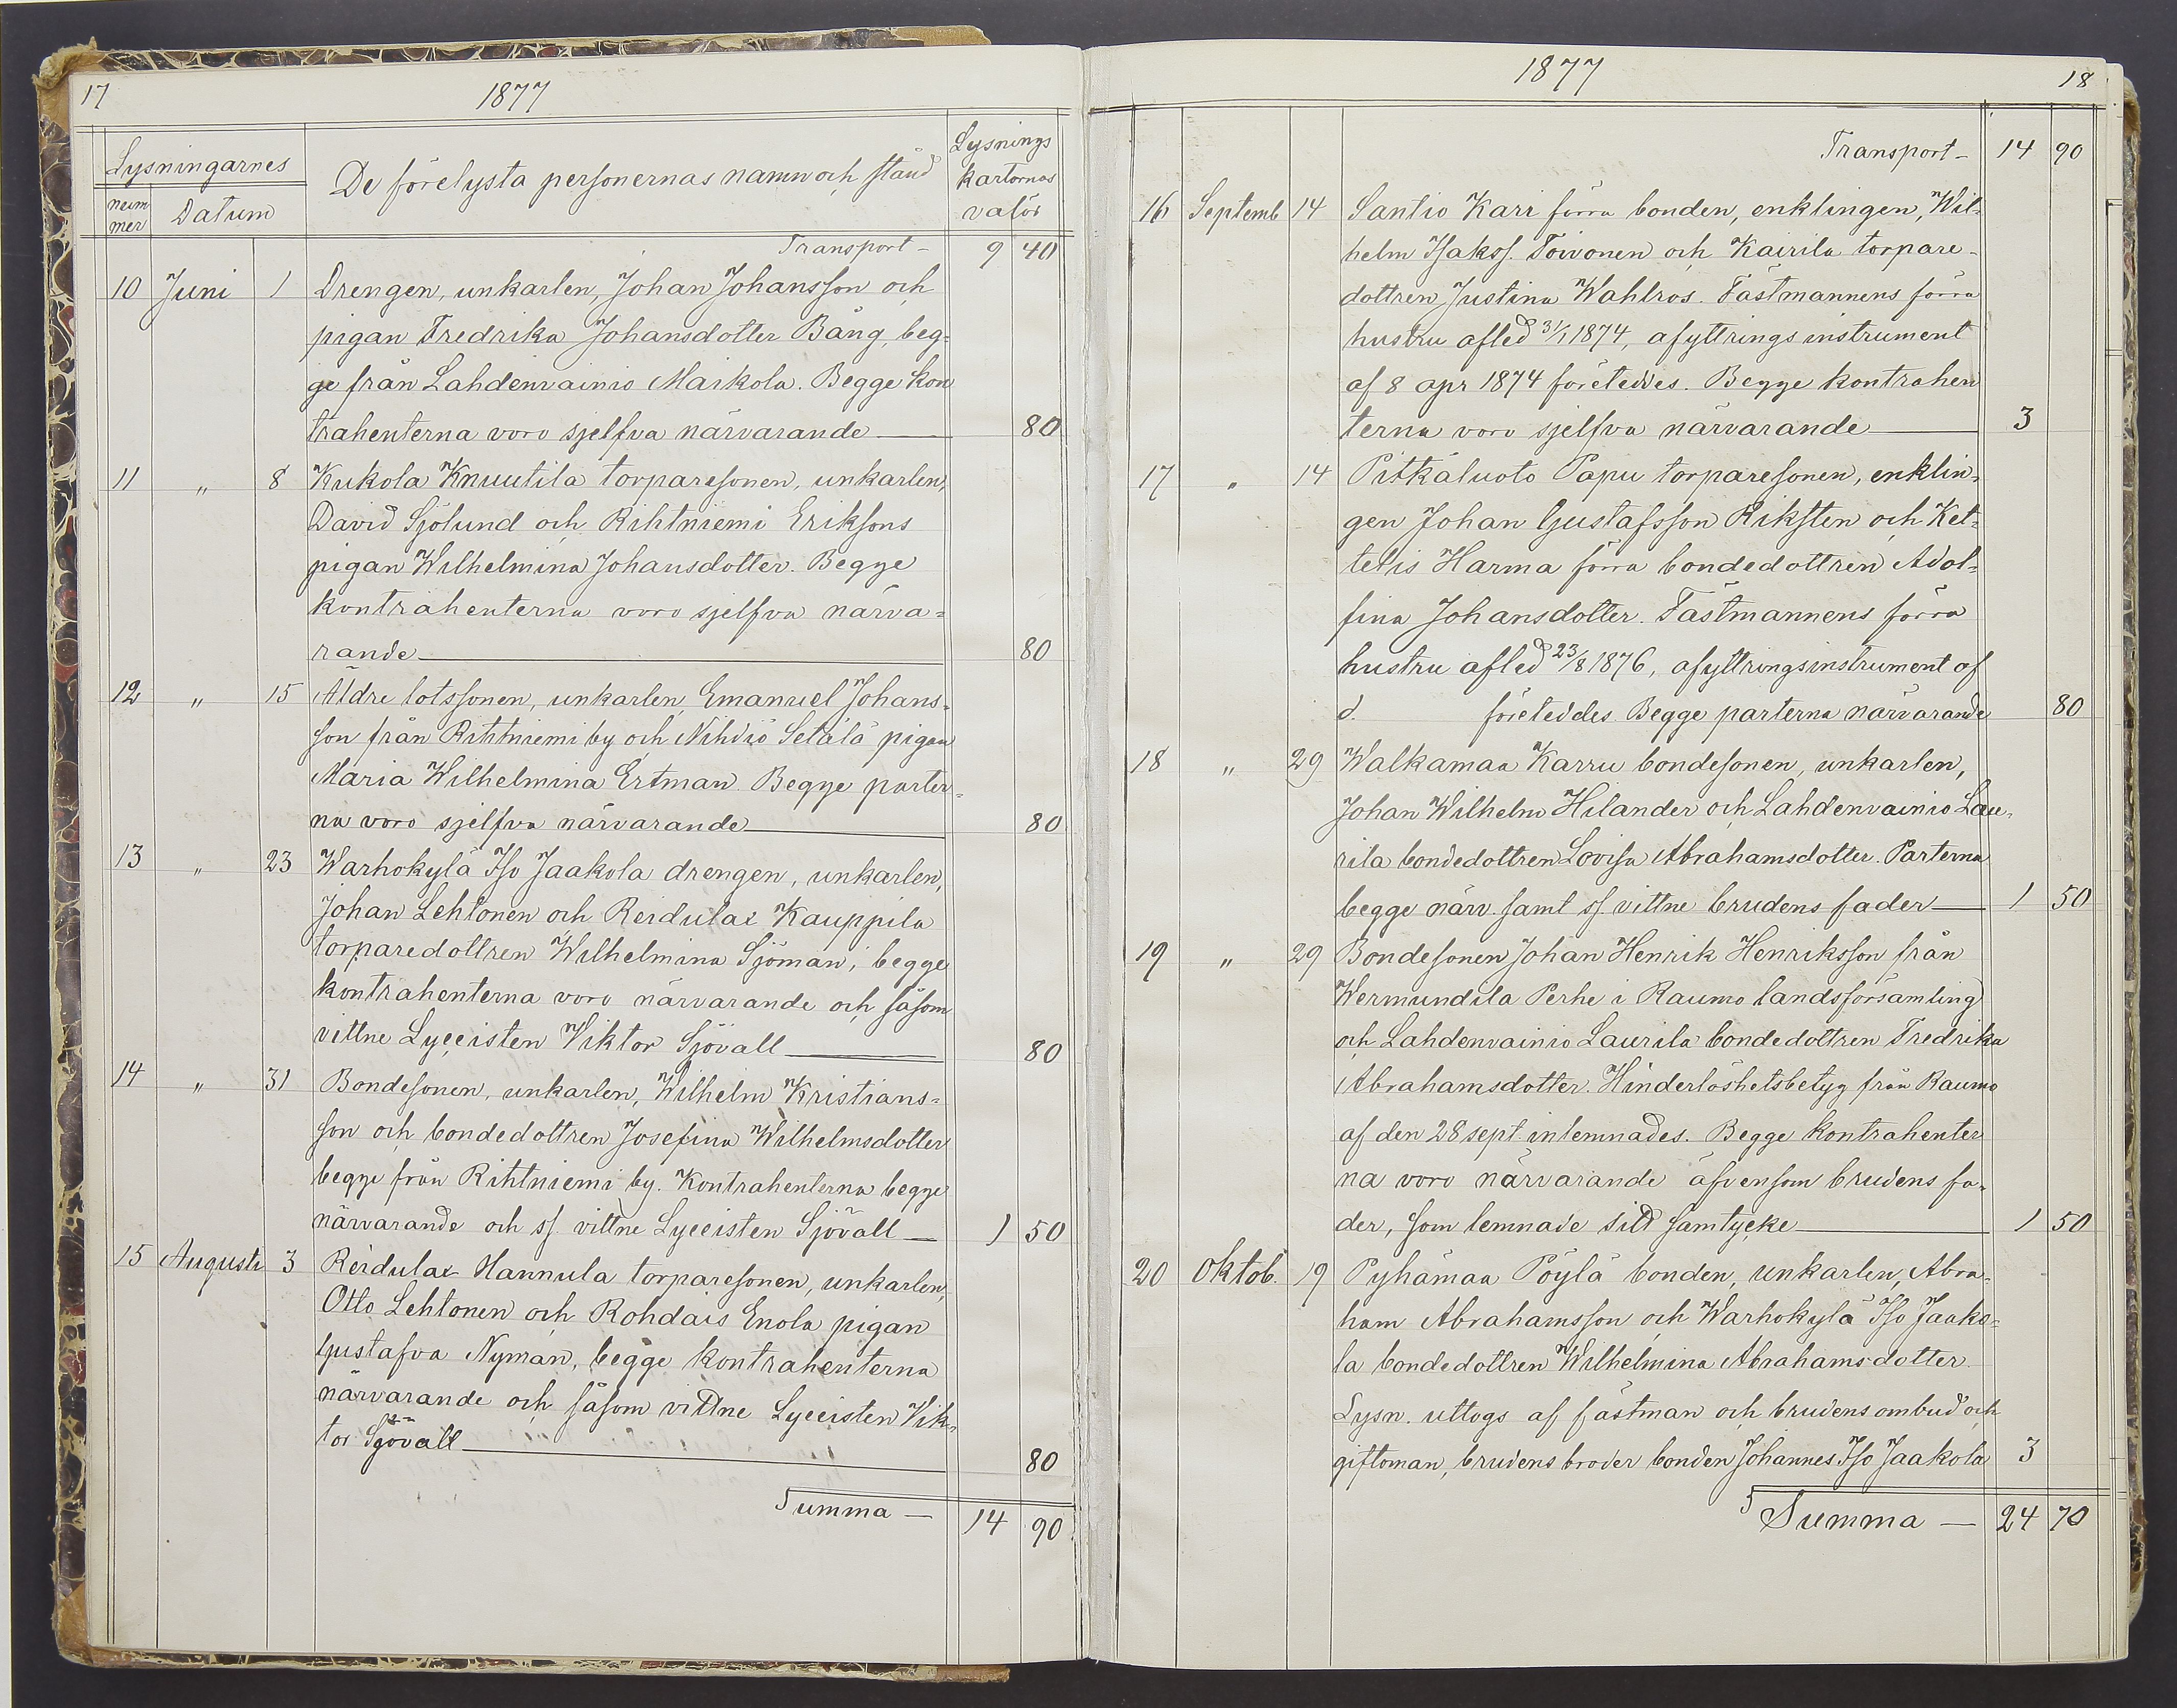 17
1877
Lysningarnes
De förelysta personernas namn och stånd
Lysnings
kartornas
valör
num
mer
Datum
Transport - 9 40
10 Juni 1 Drengen, unkarlen, Johan Johansson och
pigan Fredrika Johansdotter Bång, beg=
ge från Lahdenvainio Maikola. Begge kon
trahenterna voro sjelfva närvarande 80
11 " 8 Kukola Knuutila torparesonen, unkarlen,
David Sjölund och Rihtniemi Eriksons
pigan Wilhelmina Johansdotter. Begge
kontrahenterna voro sjelfva närva=
rande 80
12 " 15 Äldre lotssonen, unkarlen, Emanuel Johans=
son från Rihtniemi by och Nihdiö Setälä pigan
Maria Wilhelmina Ertman. Begge parter=
na voro sjelfva närvarande 80
13 " 23 Warhokylä Iso Jaakola drengen, unkarlen,
Johan Lehtonen och Reidulax Kauppila
torparedottren Wilhelmina Sjöman, begge
kontrahenterna voro närvarande och såsom
vittne Lyceisten Viktor Sjövall 80
14 " 31 Bondesonen, unkarlen, Wilhelm Kristians=
son och bondedottren Josefina Wilhelmsdotter
begge från Rihtniemi by. Kontrahenterna begge
närvarande och ss. vittne Lyceisten Sjövall 1 50
15 Augusti 3 Reidulax Hannula torparesonen, unkarlen,
Otto Lehtonen och Rohdais Enola pigan
Gustafva Nyman, begge kontrahenterna
närvarande och såsom vittne Lyceisten Vik=
tor Sjövall 80
Summa — 14 90
1877
18
Transport - 14 90
16 Septemb 14 Santio Kari förra bonden, enklingen, Wil=
helm Isakss. Toivonen och Kairila torpare-
dottren Justina Wahlros. Fästmannens förra
hustru afled 31/1 1874, afyttringsinstrument
af 8 apr 1874 företeddes. Begge kontrahen
terna voro sjelfva närvarande 3
17 " 14 Pitkäluoto Papu torparesonen, enklin=
gen Johan Gustafsson Riksten och Ket=
telis Harma förra bondedottren Adol=
fina Johansdotter. Fästmannens förra
hustru afled 23/8 1876, afyttringsinstrument af
d. företeddes. Begge parterna närvarande 80
18 " 29 Walkamaa Karru bondesonen, unkarlen,
Johan Wilhelm Hilander och Lahdenvainio Lau=
rila bondedottren Lovisa Abrahamsdotter. Parterna
begge närv. samt ss. vittne brudens fader 1 50
19 " 29 Bondesonen Johan Henrik Henriksson från
Wermundila Perhe i Raumo landsförsamling
och Lahdenvainio Laurila bondedottren Fredrika
Abrahamsdotter. Hinderlöshetsbetyg från Raumo
af den 28 sept. inlemnades. Begge kontrahenter
na voro närvarande äfvensom brudens fa=
der, som lemnade sitt samtycke 1 50
20 Oktob. 19 Pyhämaa Pöylä bonden, unkarlen, Abra=
ham Abrahamsson och Warhokylä Iso Jaako=
la bondedottren Wilhelmina Abrahamsdotter.
Lysn. uttogs af fästman och brudens ombud och
giftoman, brudens broder bonden Johannes Iso Jaakola 3
Summa — 24 70